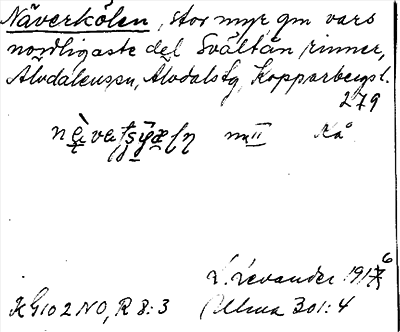 Näverkölen, stor myr gm vars
nordligaste del Svältån rinner,
Älvdalens sn, Älvdals tg, Kopparbergs l.
279
mu II Kå
L. Levander 1916
KG 10 2 NO, R 8:3 Ulma 301:4